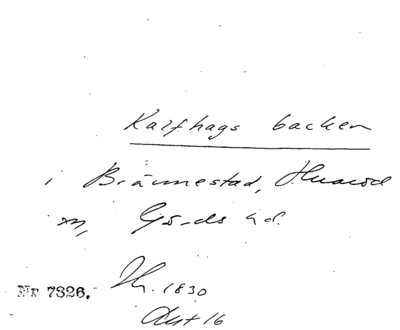 Kalfhags backen
i Brännestad, Huaröd
sn, Gärds hd.
Nr 7326. Th. 1830
Akt 16